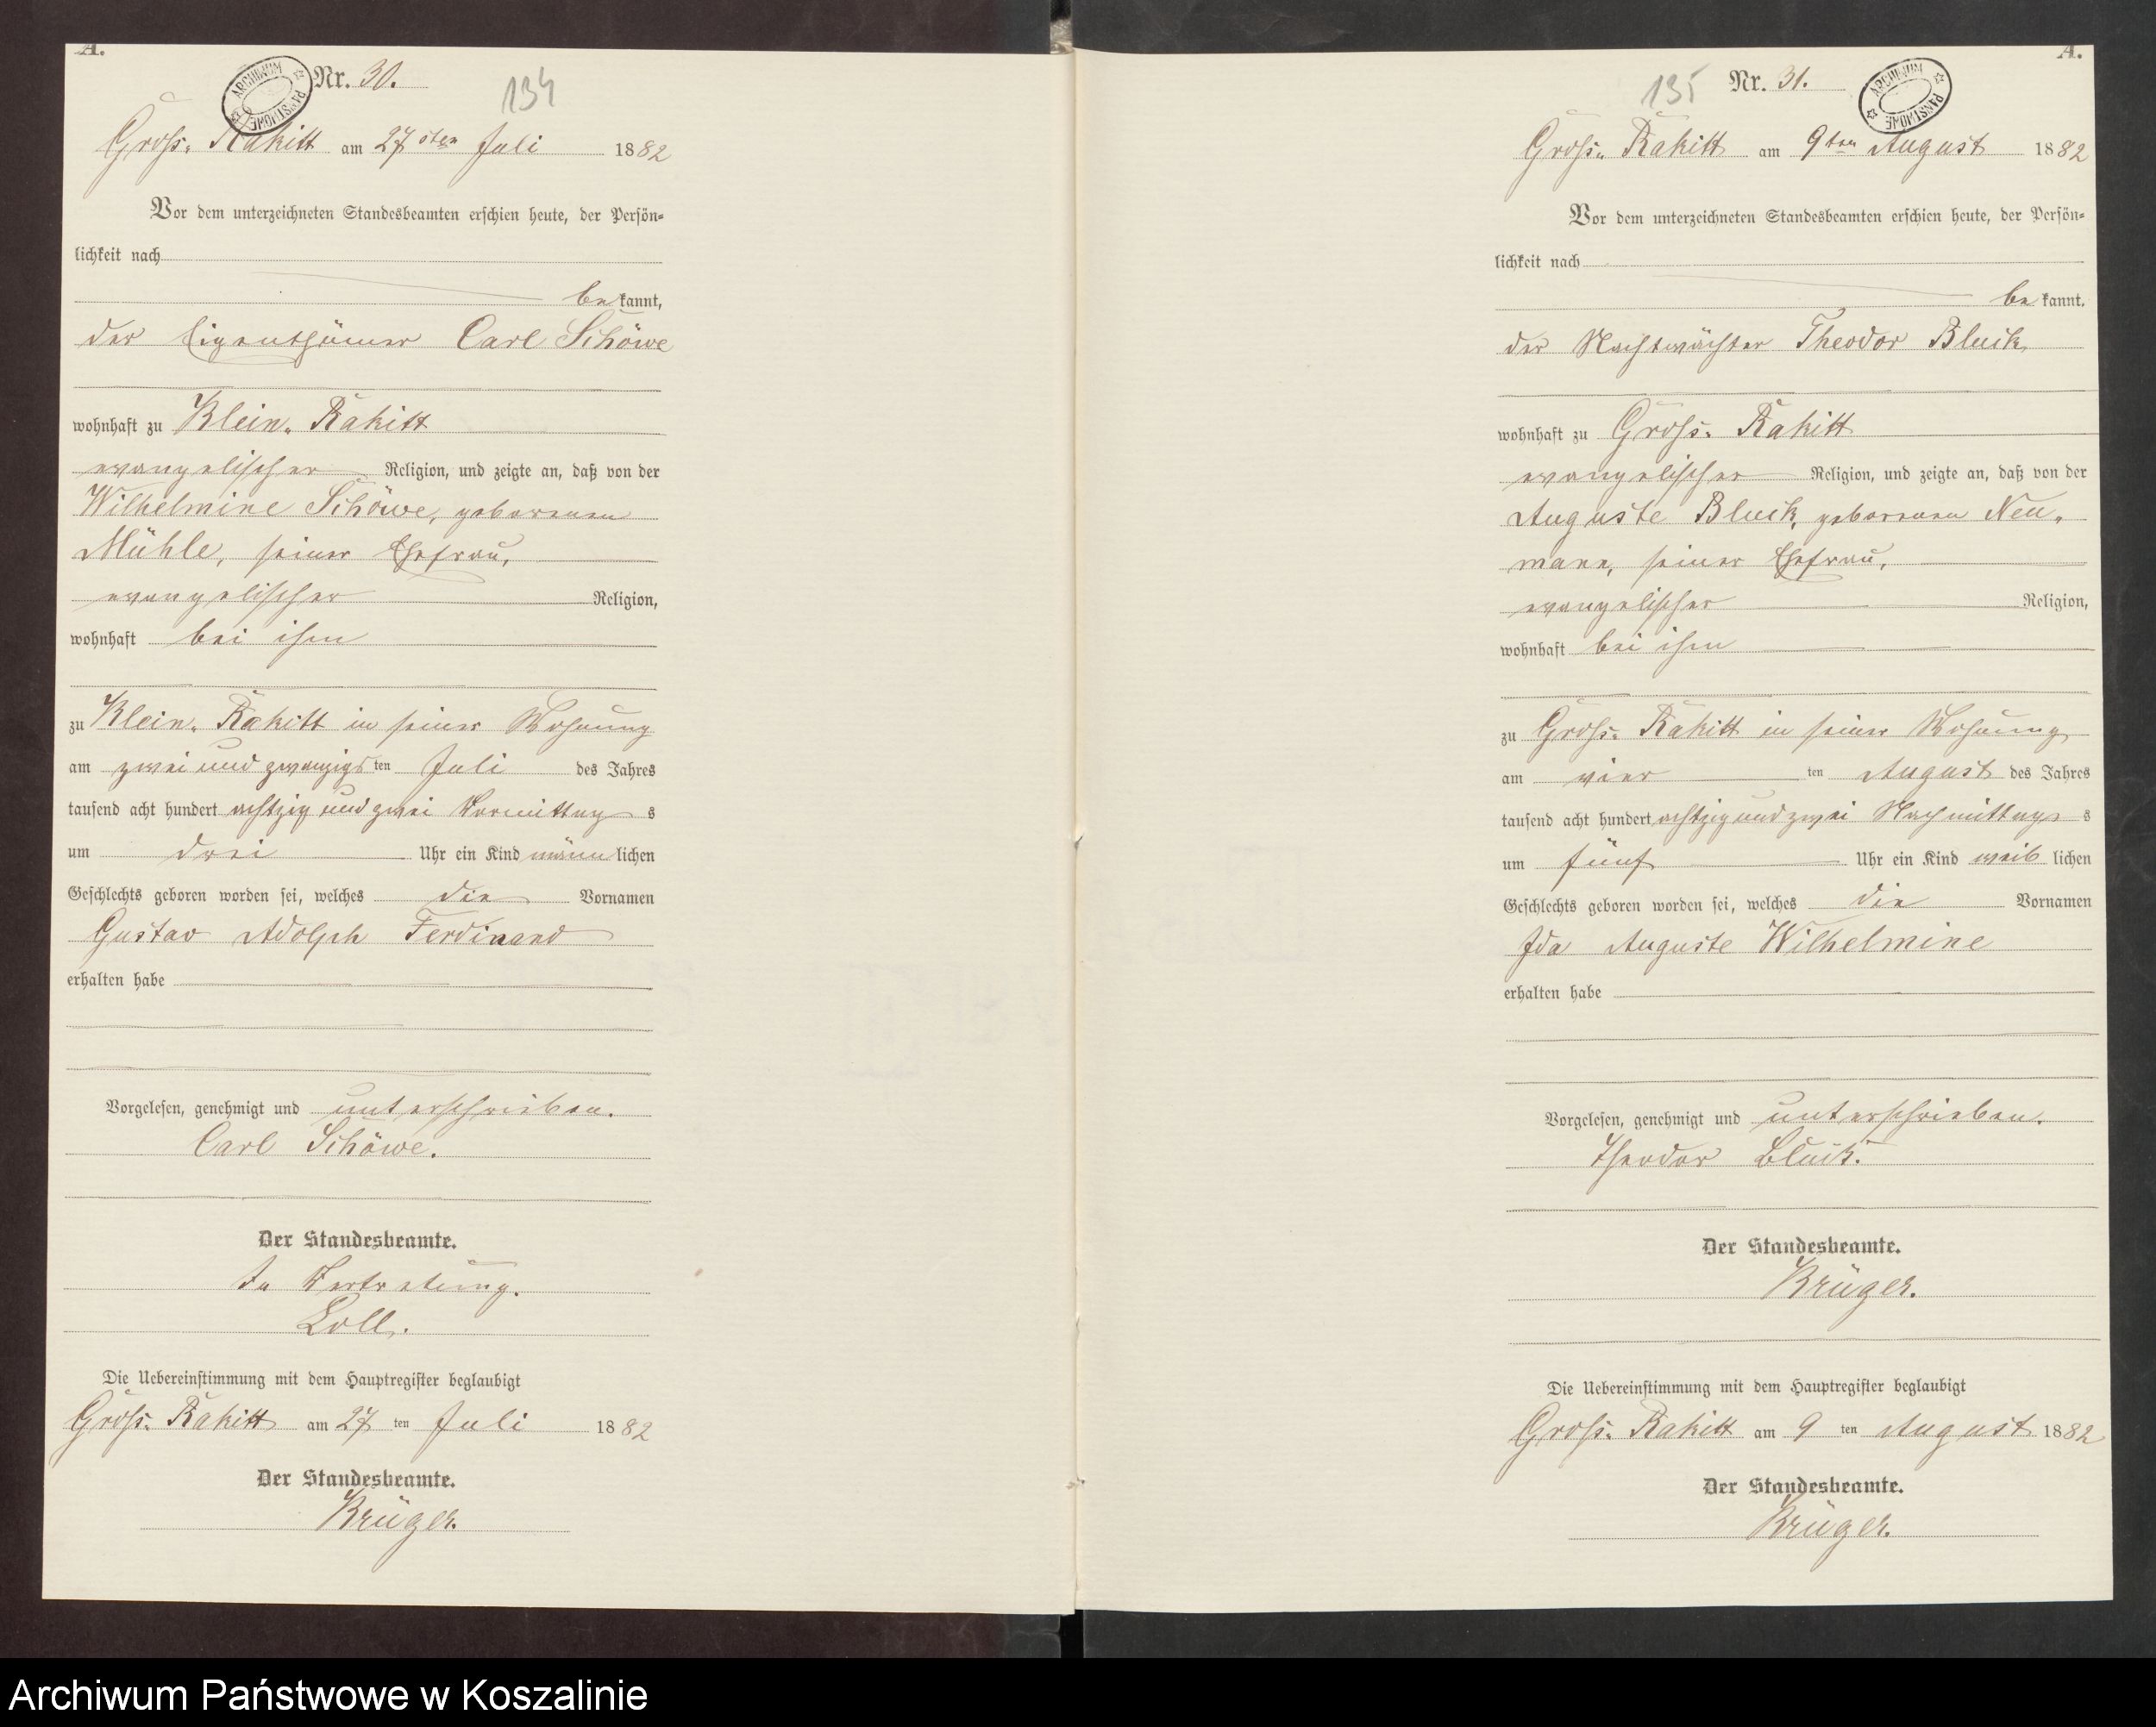 A.
ARCHIWUM PAŃSTWOWE
Nr. 30.
134
Groß-Rakitt am 27sten Juli 1882
Vor dem unterzeichneten Standesbeamten erschien heute, der Persön-
lichkeit nach
bekannt,
der Eigenthümer Carl Schöwe
wohnhaft zu Klein-Rakitt
evangelischer Religion, und zeigte an, daß von der
Wilhelmine Schöwe, geborenen
Mühle, seiner Ehefrau,
evangelischer Religion,
wohnhaft bei ihm
zu Klein-Rakitt in seiner Wohnung
am zwei und zwanzigsten Juli des Jahres
tausend acht hundert achtzig und zwei Vormittags
um drei Uhr ein Kind männlichen
Geschlechts geboren worden sei, welches die Vornamen
Gustav Adolph Ferdinand
erhalten habe
Vorgelesen, genehmigt und unterschrieben.
Carl Schöwe.
Der Standesbeamte.
In Vertretung.
Loll.
Die Uebereinstimmung mit dem Hauptregister beglaubigt
Groß-Rakitt am 27ten Juli 1882
Der Standesbeamte.
Krüger.
A.
135
Nr. 31.
ARCHIWUM PAŃSTWOWE
Groß-Rakitt am 9ten August 1882
Vor dem unterzeichneten Standesbeamten erschien heute, der Persön-
lichkeit nach
bekannt,
der Nachtwächter Theodor Bluck,
wohnhaft zu Groß-Rakitt
evangelischer Religion, und zeigte an, daß von der
Auguste Bluck, geborenen Neu-
mann, seiner Ehefrau,
evangelischer Religion,
wohnhaft bei ihm
zu Groß-Rakitt in seiner Wohnung
am vierten August des Jahres
tausend acht hundert achtzig und zwei Nachmittags
um fünf Uhr ein Kind weiblichen
Geschlechts geboren worden sei, welches die Vornamen
Ida Auguste Wilhelmine
erhalten habe
Vorgelesen, genehmigt und unterschrieben.
Theodor Bluck.
Der Standesbeamte.
Krüger.
Die Uebereinstimmung mit dem Hauptregister beglaubigt
Groß-Rakitt am 9ten August 1882
Der Standesbeamte.
Krüger.
Archiwum Państwowe w Koszalinie